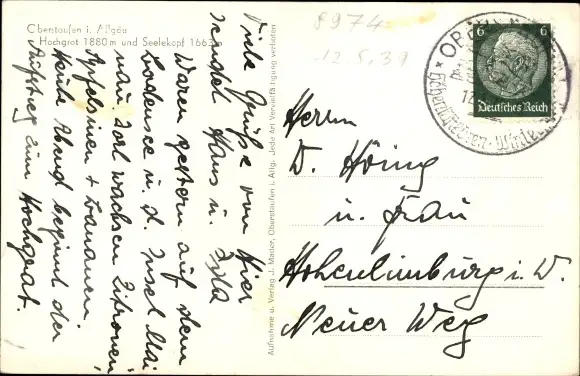 Oberstaufen i. Allgäu
Hochgrat 1880 m und Seelekopf 1663
Viele Grüße von hier
sendet Hans u.
Waren gestern auf dem
Bodensee u. d. Insel Mai
nau. Dort wachsen Zitronen,
Apfelsinen + Bananen.
Heute Abend beginnt der
Aufstieg zum Hochgrat.
Aufnahme u. Verlag J. Mader, Oberstaufen i. Allg. Jede Art Vervielfältigung verboten
8974
12.5.39
6 6
Deutsches Reich
Herrn
W. Höing
u. Frau
Hohenlimburg i. W.
Neuer Weg